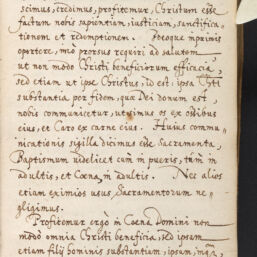 scimus, credimus, profitemur, Christum esse
factum nobis sapientiam, iustitiam, sanctifica,
tionem et redemptionem. Deoque inprimis
oportere, imò prorsus requiri ad salutem,
ut non modo Christi beneficiorum efficacia,
sed etiam ut ipse Christus, id est, ipsa Chri
substantia per fidem, quæ Dei donum est,
nobis communicetur, ut simus os ex ossibus
eius, et Caro ex carne eius. Huius commu-
nicationis sigilla dicimus esse Sacramenta,
Baptismum videlicet cum in pueris, tum in
adultis, et Coenam in adultis. Nec alios
etiam eximios usus, Sacramentorum ne-
gligimus.
Profitemur ergò in Coena Domini non
modo omnia Christi beneficia, sed ipsam
etiam filij hominis substantiam, ipsam,